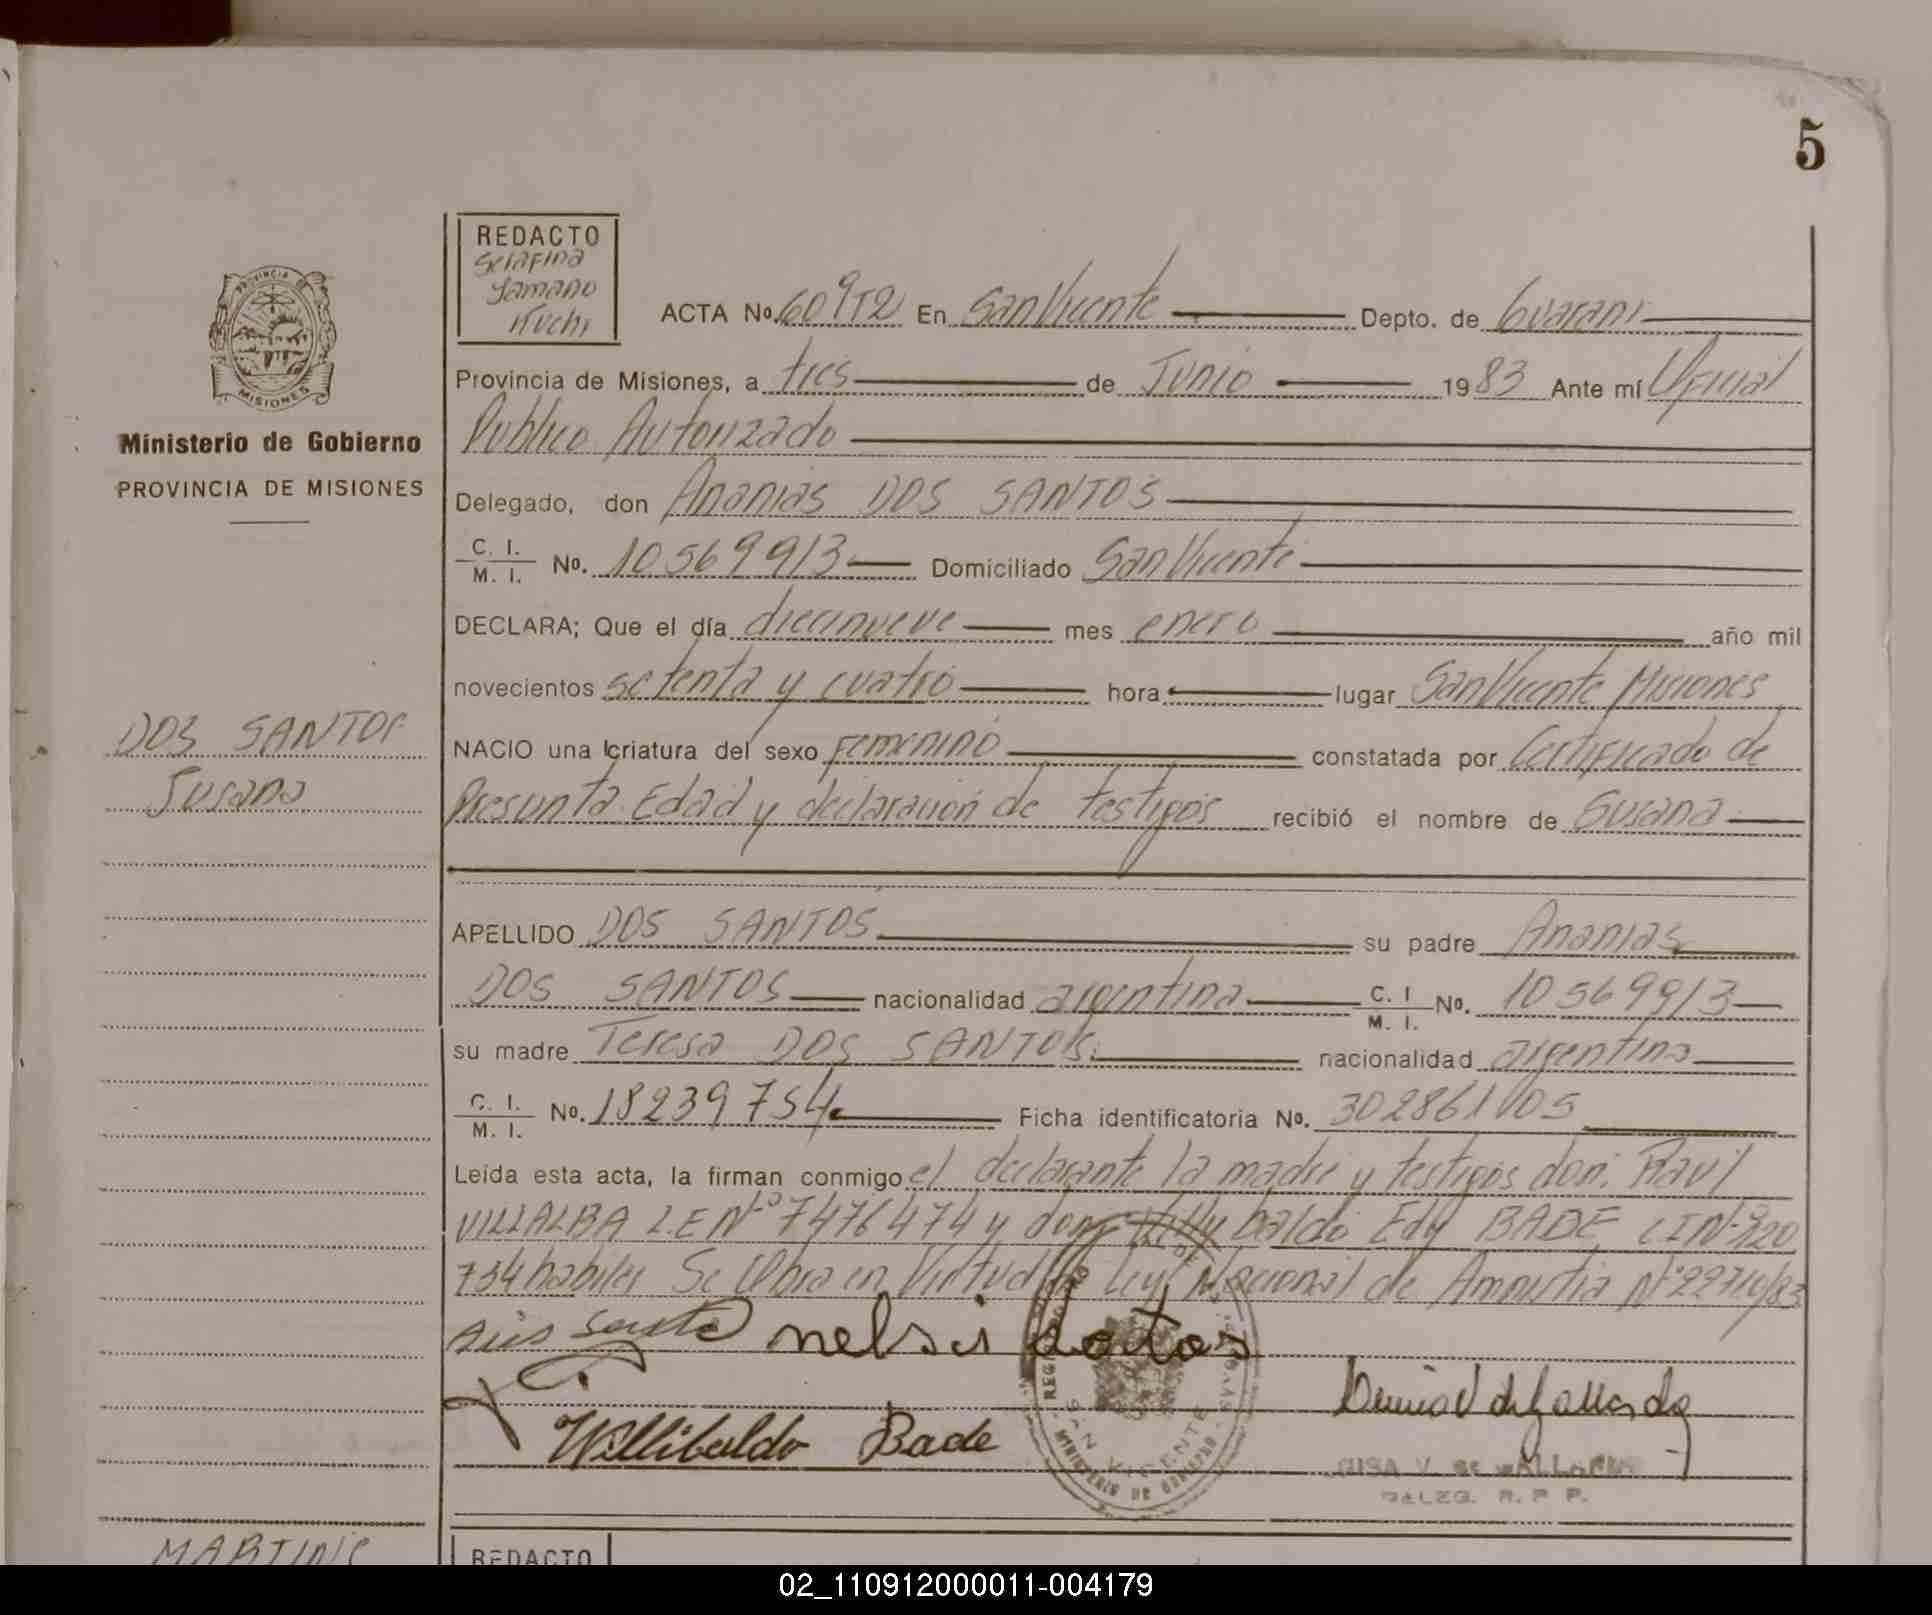 5
REDACTO
Serafina
Yamano
Kuchi
ACTA No. 609T2 En San Vicente Depto. de Guarani
Provincia de Misiones, a tres de Junio 1983 Ante mí Oficial
Publico Autorizado
Delegado, don Ananias DOS SANTOS
C. I. / M. I. No. 10569913 Domiciliado San Vicente
DECLARA; Que el día diecinueve mes enero año mil
novecientos setenta y cuatro hora lugar San Vicente Misiones
NACIO una criatura del sexo Femenino constatada por Certificado de
Presunta Edad y declaración de testigos recibió el nombre de Susana
APELLIDO DOS SANTOS su padre Ananias
DOS SANTOS nacionalidad argentina C. I / M. I. No. 10569913
su madre Teresa DOS SANTOS. nacionalidad argentina
C. I. / M. I. No. 18239754 Ficha identificatoria No. 302861/05
Leída esta acta, la firman conmigo el declarante la madre y testigos don: Raul
VILLALBA L.E Nº 7476474 y don Willy baldo Edy BADE CI Nº 320
734 habiles Se Obra en Virtud Ley Nacional de Amnistia Nº 22710/83
nelsi
Willibaldo Bade
SAN VICENTE
MINISTERIO DE GOBIERNO
DELEG. R. P. P.
PROVINCIA DE
MISIONES
Ministerio de Gobierno
PROVINCIA DE MISIONES
DOS SANTOS
Susana
MARTINS
REDACTO
02_110912000011-004179